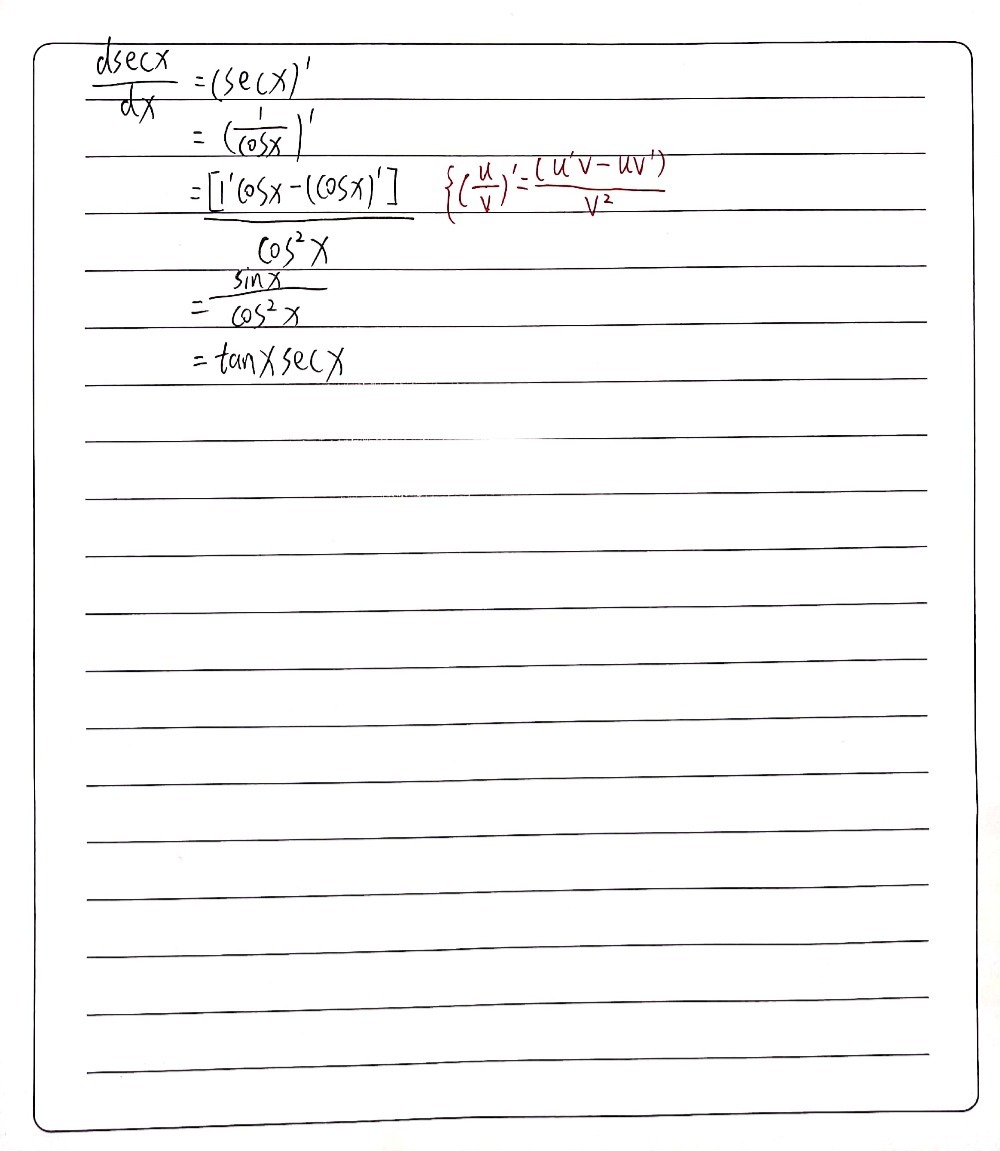 dsecx/dx = (secx)'
= (1/cosx)'
= [1'cosx-(cosx)']/cos²x {(u/v)' = (u'v-uv')/v²
= sinx/cos²x
= tanxsecx